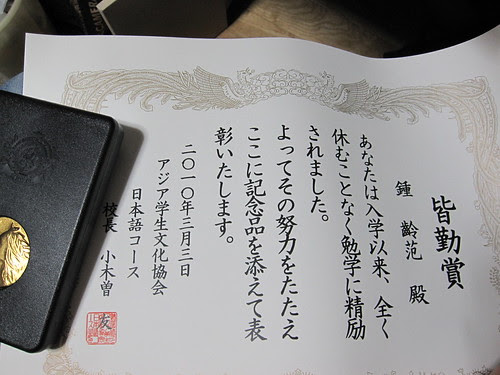 皆勤賞
鍾 齡范 殿
あなたは入学以来、全く
休むことなく勉学に精励
されました。
よってその努力をたたえ
ここに記念品を添えて表
彰いたします。
二〇一〇年三月三日
アジア学生文化協会
日本語コース
校長 小木曽 友